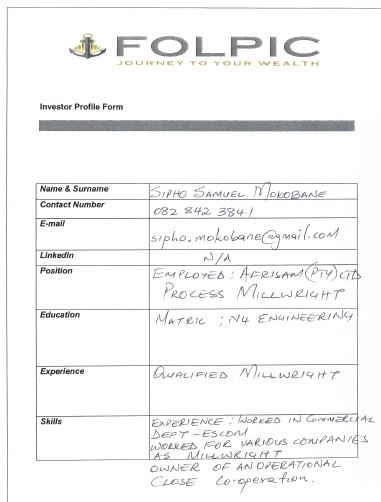 FOLPIC
JOURNEY TO YOUR WEALTH
Investor Profile Form
Name & Surname SIPHO SAMUEL MOKOBANE
Contact Number 082 842 3841
E-mail sipho.mokobane@gmail.com
LinkedIn N/A
Position EMPLOYED : AFRISAM (PTY) LTD
PROCESS MILLWRIGHT
Education MATRIC ; N4 ENGINEERING
Experience QUALIFIED MILLWRIGHT
Skills EXPERIENCE : WORKED IN COMMERCIAL
DEPT - ESCOM
WORKED FOR VARIOUS COMPANIES
AS MILLWRIGHT
OWNER OF AN OPERATIONAL
CLOSE Co-operation.